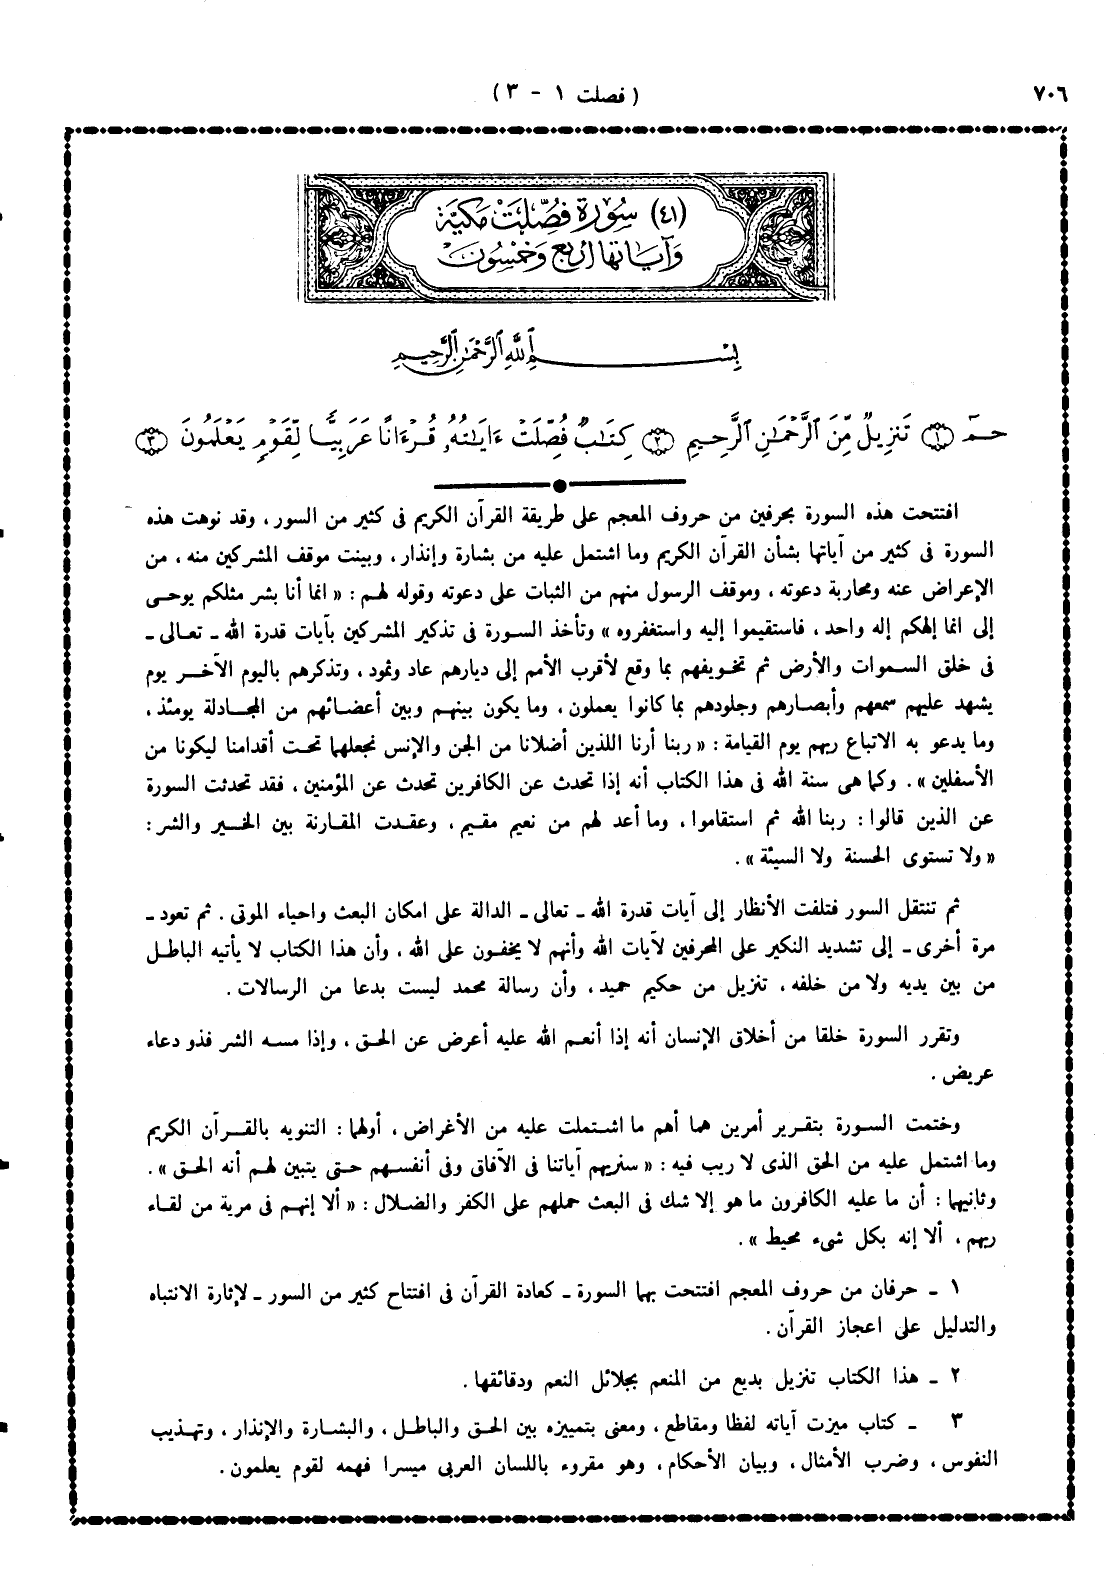 ٧٠٦
( فصلت ١ - ٣ )
(٤١) سُورَة فُصِّلَتْ مَكيَّة
وَآيَاتهَا أربَع وَخَمْسُونْ
بِسْمِ اللَّهِ الرَّحْمَٰنِ الرَّحِيمِ
حمٓ ﴿١﴾ تَنزِيلٌ مِّنَ ٱلرَّحْمَٰنِ ٱلرَّحِيمِ ﴿٢﴾ كِتَٰبٌ فُصِّلَتْ ءَايَٰتُهُۥ قُرْءَانًا عَرَبِيًّا لِّقَوْمٍ يَعْلَمُونَ ﴿٣﴾
افتتحت هذه السورة بحرفين من حروف المعجم على طريقة القرآن الكريم فى كثير من السور ، وقد نوهت هذه
السورة فى كثير من آياتها بشأن القرآن الكريم وما اشتمل عليه من بشارة وإنذار ، وبينت موقف المشركين منه ، من
الإعراض عنه ومحاربة دعوته ، وموقف الرسول منهم من الثبات على دعوته وقوله لهم : « انما أنا بشر مثلكم يوحى
إلى انما إلهكم إله واحد ، فاستقيموا إليه واستغفروه » وتأخذ السورة فى تذكير المشركين بآيات قدرة الله ـ تعالى ـ
فى خلق السموات والأرض ثم تخويفهم بما وقع لأقرب الأمم إلى ديارهم عاد وثمود ، وتذكرهم باليوم الآخر يوم
يشهد عليهم سمعهم وأبصارهم وجلودهم بما كانوا يعملون ، وما يكون بينهم وبين أعضائهم من المجادلة يومئذ ،
وما يدعو به الاتباع ربهم يوم القيامة : « ربنا أرنا اللذين أضلانا من الجن والإنس نجعلهما تحت أقدامنا ليكونا من
الأسفلين » . وكما هى سنة الله فى هذا الكتاب أنه إذا تحدث عن الكافرين تحدث عن المؤمنين ، فقد تحدثت السورة
عن الذين قالوا : ربنا الله ثم استقاموا ، وما أعد لهم من نعيم مقيم ، وعقدت المقارنة بين الخير والشر :
« ولا تستوى الحسنة ولا السيئة » .
ثم تنتقل السور فتلفت الأنظار إلى آيات قدرة الله ـ تعالى ـ الدالة على امكان البعث واحياء الموتى . ثم تعود ـ
مرة أخرى ـ إلى تشديد النكير على المحرفين لآيات الله وأنهم لا يخفون على الله ، وأن هذا الكتاب لا يأتيه الباطل
من بين يديه ولا من خلفه ، تنزيل من حكيم حميد ، وأن رسالة محمد ليست بدعا من الرسالات .
وتقرر السورة خلقا من أخلاق الإنسان أنه إذا أنعم الله عليه أعرض عن الحق ، وإذا مسه الشر فذو دعاء
عريض .
وختمت السورة بتقرير أمرين هما أهم ما اشتملت عليه من الأغراض ، أولهما : التنويه بالقرآن الكريم
وما اشتمل عليه من الحق الذى لا ريب فيه : « سنريهم آياتنا فى الآفاق وفى أنفسهم حتى يتبين لهم أنه الحق » .
وثانيهما : أن ما عليه الكافرون ما هو إلا شك فى البعث حملهم على الكفر والضلال : « ألا إنهم فى مرية من لقاء
ربهم ، ألا إنه بكل شىء محيط » .
١ ـ حرفان من حروف المعجم افتتحت بهما السورة ـ كعادة القرآن فى افتتاح كثير من السور ـ لإثارة الانتباه
والتدليل على اعجاز القرآن .
٢ ـ هذا الكتاب تنزيل بديع من المنعم بجلائل النعم ودقائقها .
٣ ـ كتاب ميزت آياته لفظا ومقاطع ، ومعنى بتمييزه بين الحق والباطل ، والبشارة والإنذار ، وتهذيب
النفوس ، وضرب الأمثال ، وبيان الأحكام ، وهو مقروء باللسان العربى ميسرا فهمه لقوم يعلمون .